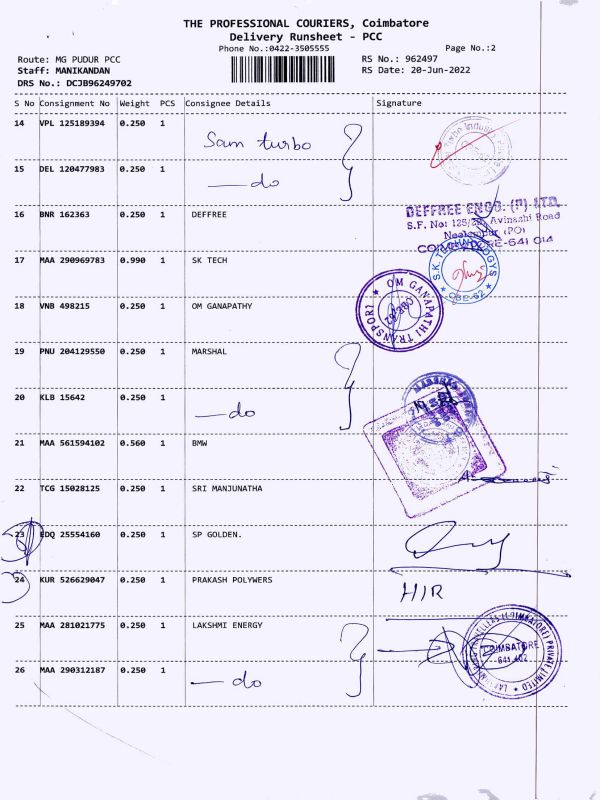 THE PROFESSIONAL COURIERS, Coimbatore
Delivery Runsheet - PCC
Phone No.:0422-3505555
Page No.:2
Route: MG PUDUR PCC
RS No.: 962497
Staff: MANIKANDAN
RS Date: 20-Jun-2022
DRS No.: DCJB96249702
S No Consignment No Weight PCS Consignee Details Signature
14 VPL 125189394 0.250 1 Sam turbo
15 DEL 120477983 0.250 1 — do
16 BNR 162363 0.250 1 DEFFREE
DEFFREE ENGG. (P) LTD.
Avinashi Road
Neelambur (PO)
17 MAA 290969783 0.990 1 SK TECH
S.K TECHNOLOGYS
CBE-62
18 VNB 498215 0.250 1 OM GANAPATHY
OM GANAPATHI TRANSPORT
CBE-62
19 PNU 204129550 0.250 1 MARSHAL
20 KLB 15642 0.250 1 — do
21 MAA 561594102 0.560 1 BMW
22 TCG 15028125 0.250 1 SRI MANJUNATHA
23 EDQ 25554160 0.250 1 SP GOLDEN.
24 KUR 526629047 0.250 1 PRAKASH POLYWERS
H/R
25 MAA 281021775 0.250 1 LAKSHMI ENERGY
(COIMBATORE) PRIVATE LIMITED
COIMBATORE
641 402
26 MAA 290312187 0.250 1 — do